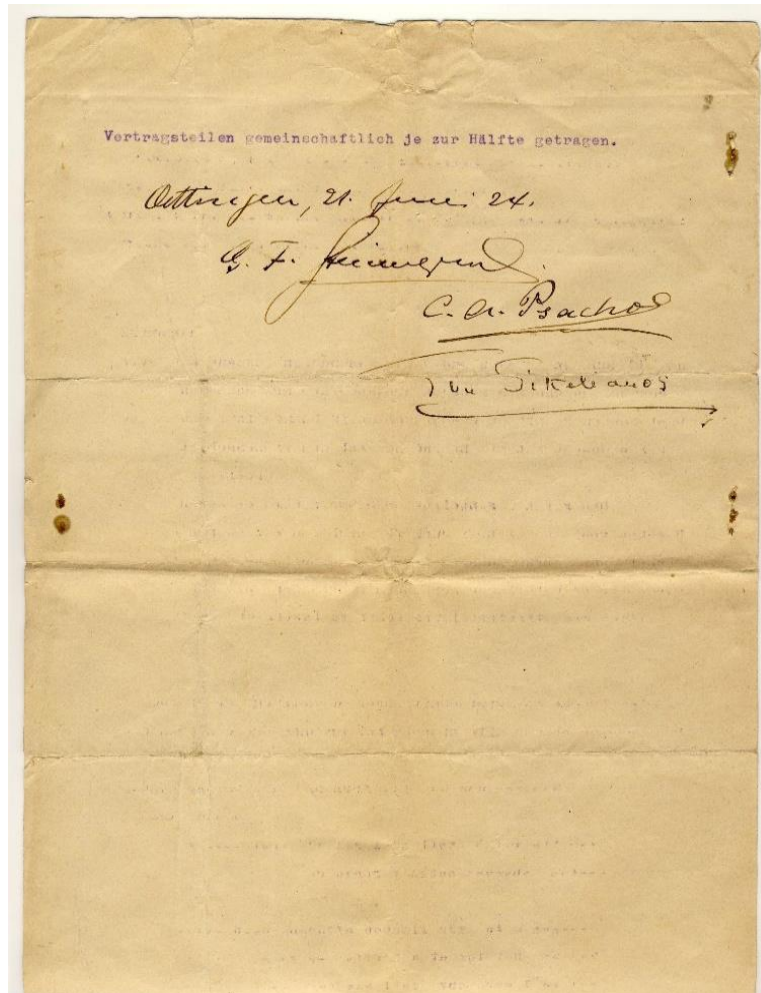 Vertragsteilen gemeinschaftlich je zur Hälfte getragen.
Oettingen, 21. Juni 24.
G. F.
C. A. Psachos
Eva Sikelianos